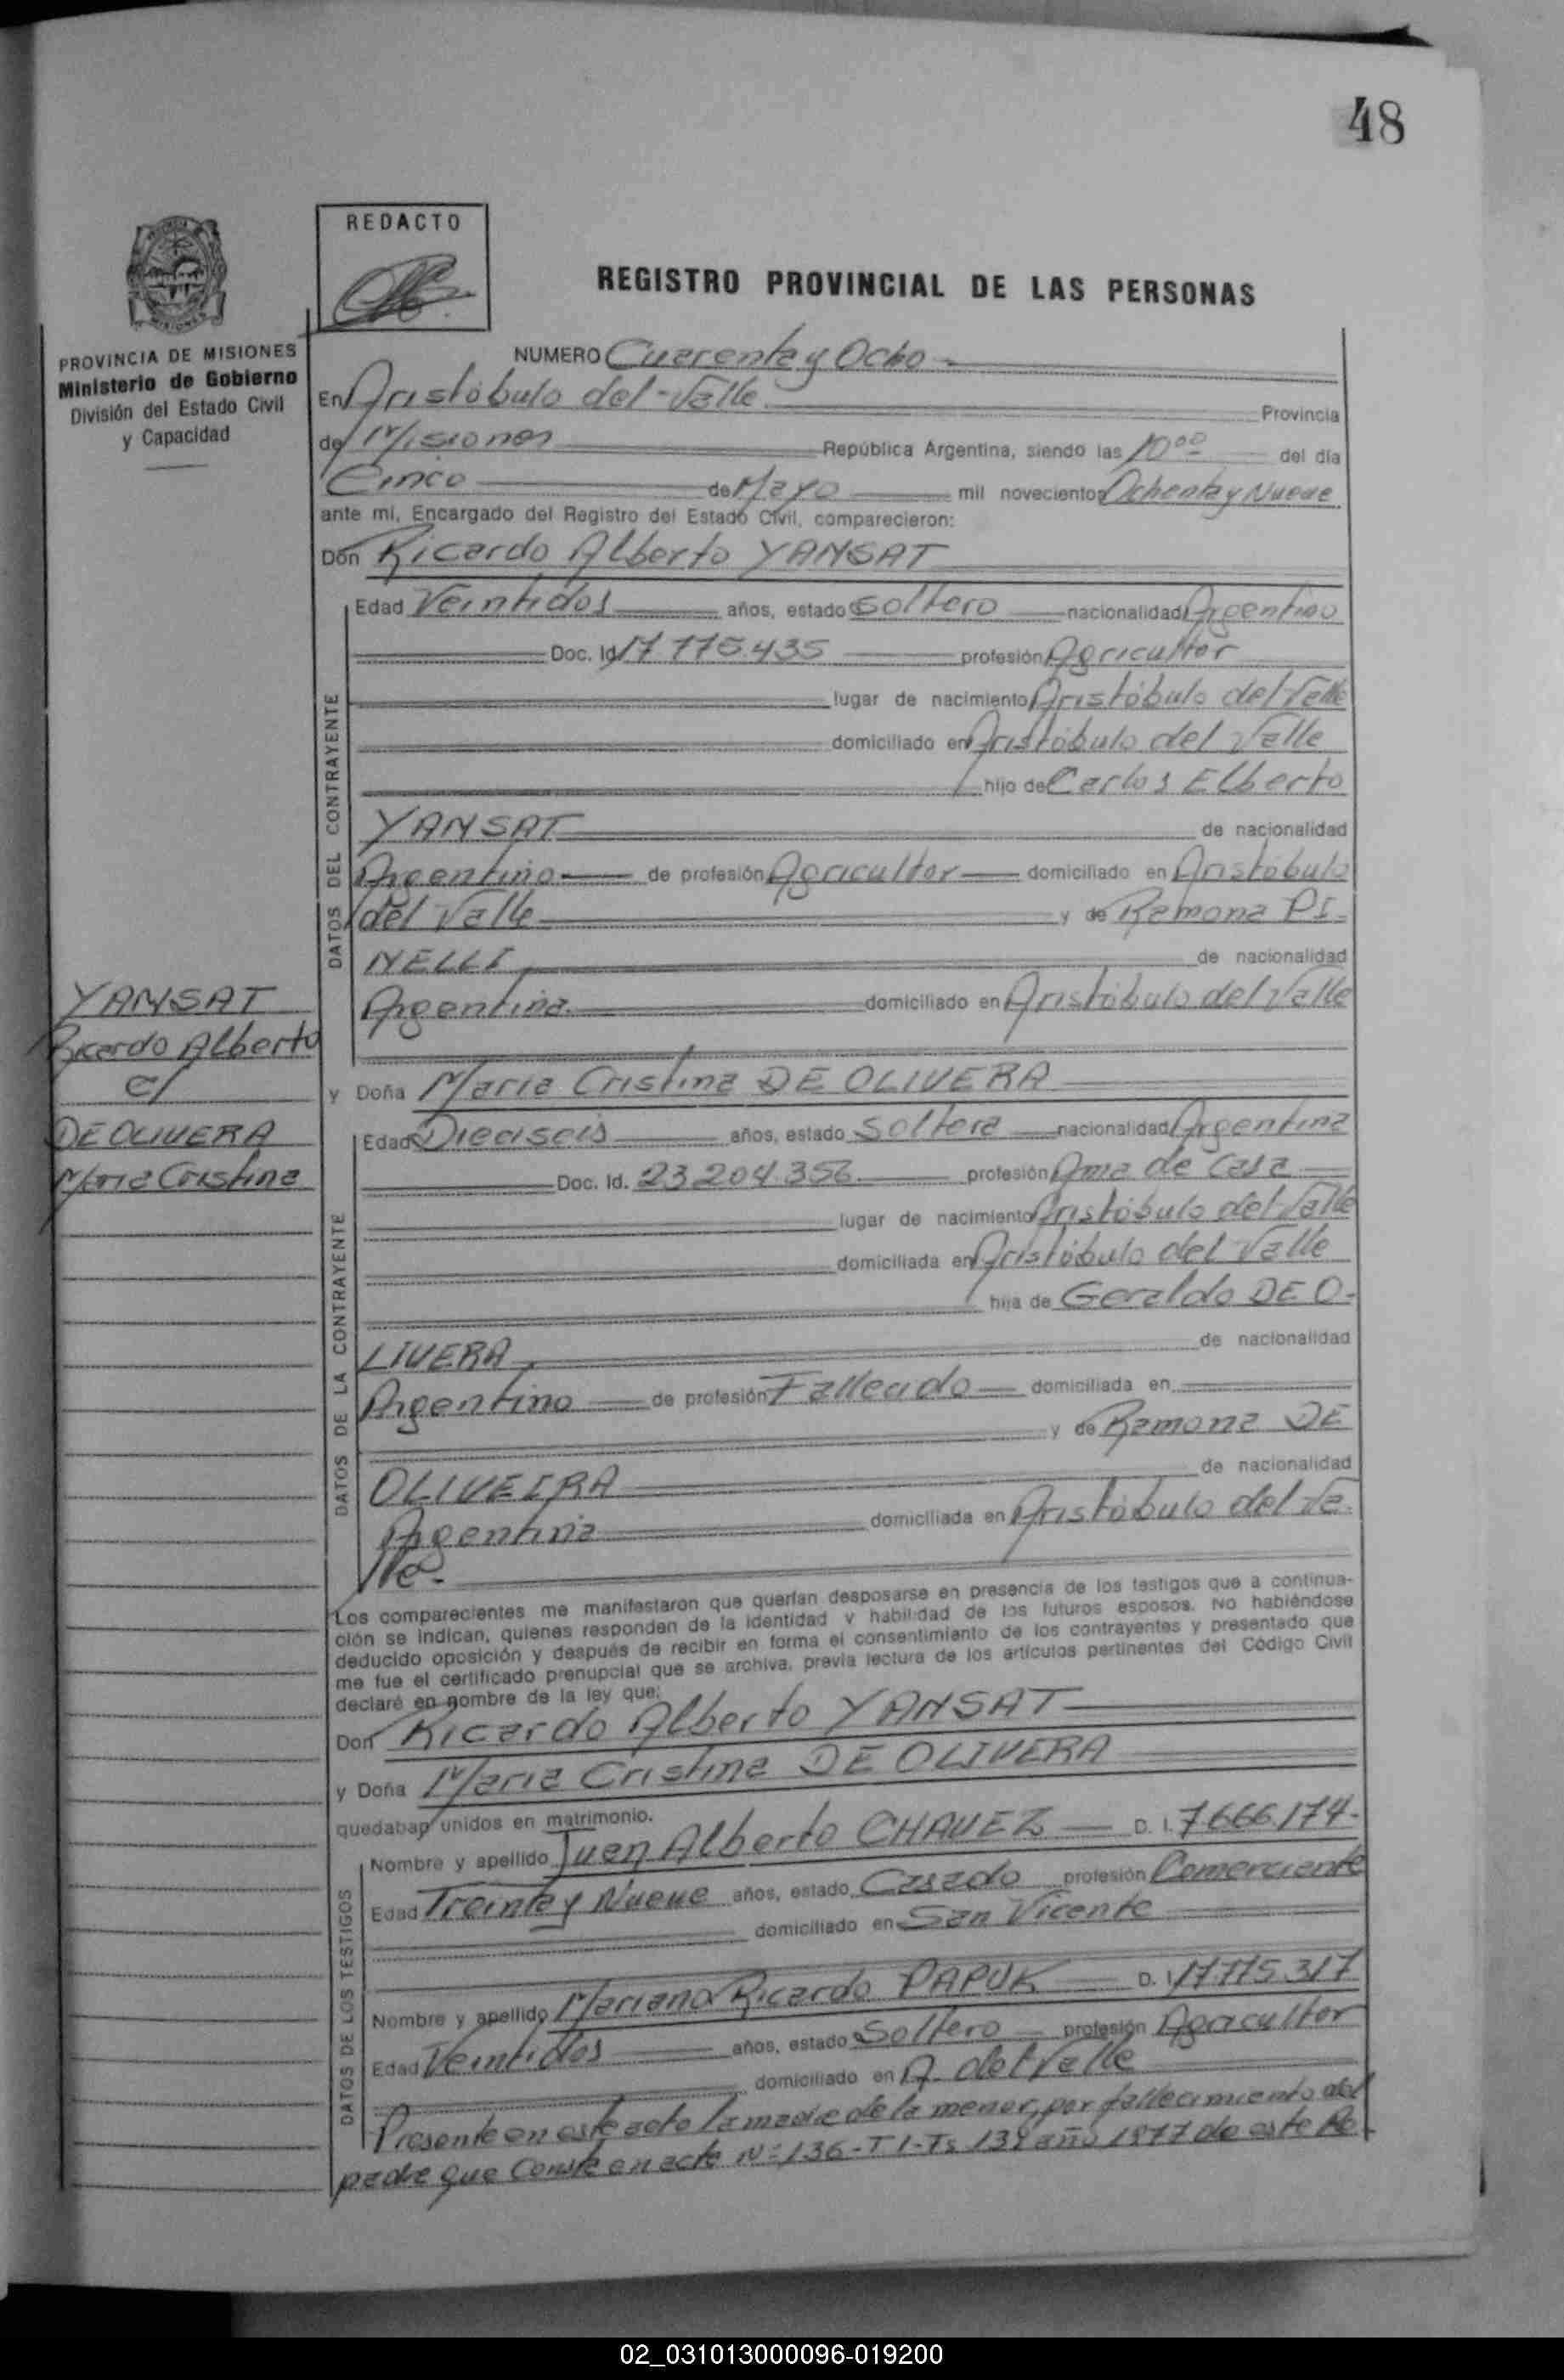 48
REDACTO
REGISTRO PROVINCIAL DE LAS PERSONAS
MISIONES
PROVINCIA DE MISIONES
Ministerio de Gobierno
División del Estado Civil
y Capacidad
NUMERO Cuarenta y Ocho
En Aristóbulo del Valle Provincia
de Misiones República Argentina, siendo las 10 00 del día
Cinco de Mayo mil novecientos Ochenta y Nueve
ante mí, Encargado del Registro del Estado Civil, comparecieron:
Don Ricardo Alberto YANSAT
DATOS DEL CONTRAYENTE
Edad Veintidos años, estado Soltero nacionalidad Argentino
Doc. Id 17.775.435 profesión Agricultor
lugar de nacimiento Aristóbulo del Valle
domiciliado en Aristóbulo del Valle
hijo de Carlos Elberto
YANSAT de nacionalidad
Argentino de profesión Agricultor domiciliado en Aristóbulo
del Valle y de Ramona PI-
NELLI de nacionalidad
Argentina domiciliado en Aristóbulo del Valle
YANSAT
Ricardo Alberto
c/
DE OLIVERA
Maria Cristina
y Doña Maria Cristina DE OLIVERA
DATOS DE LA CONTRAYENTE
Edad Dieciseis años, estado Soltera nacionalidad Argentina
Doc. Id. 23.204.356 profesión Ama de Casa
lugar de nacimiento Aristóbulo del Valle
domiciliada en Aristóbulo del Valle
hija de Geraldo DE O-
LIVERA de nacionalidad
Argentino de profesión Fallecido domiciliada en
y de Ramona DE
OLIVEIRA de nacionalidad
Argentina domiciliada en Aristóbulo del Va-
lle-
Los comparecientes me manifestaron que querían desposarse en presencia de los testigos que a continua-
ción se indican, quienes responden de la identidad y habilidad de los futuros esposos. No habiéndose
deducido oposición y después de recibir en forma el consentimiento de los contrayentes y presentado que
me fue el certificado prenupcial que se archiva, previa lectura de los artículos pertinentes del Código Civil
declaré en nombre de la ley que:
Don Ricardo Alberto YANSAT
y Doña Maria Cristina DE OLIVERA
quedaban unidos en matrimonio.
DATOS DE LOS TESTIGOS
Nombre y apellido Juan Alberto CHAVEZ D. I. 7.666.174-
Edad Treinta y Nueve años, estado Casado profesión Comerciante
domiciliado en San Vicente
Nombre y apellido Mariano Ricardo PAPUK D. I. 17.775.317
Edad Veintidos años, estado Soltero profesión Agricultor
domiciliado en A. del Valle
Presente en este acto la madre de la menor, por fallecimiento del
padre que Consta en acta Nº 136-T I- 139 año 1977 de este Re-
02_031013000096-019200